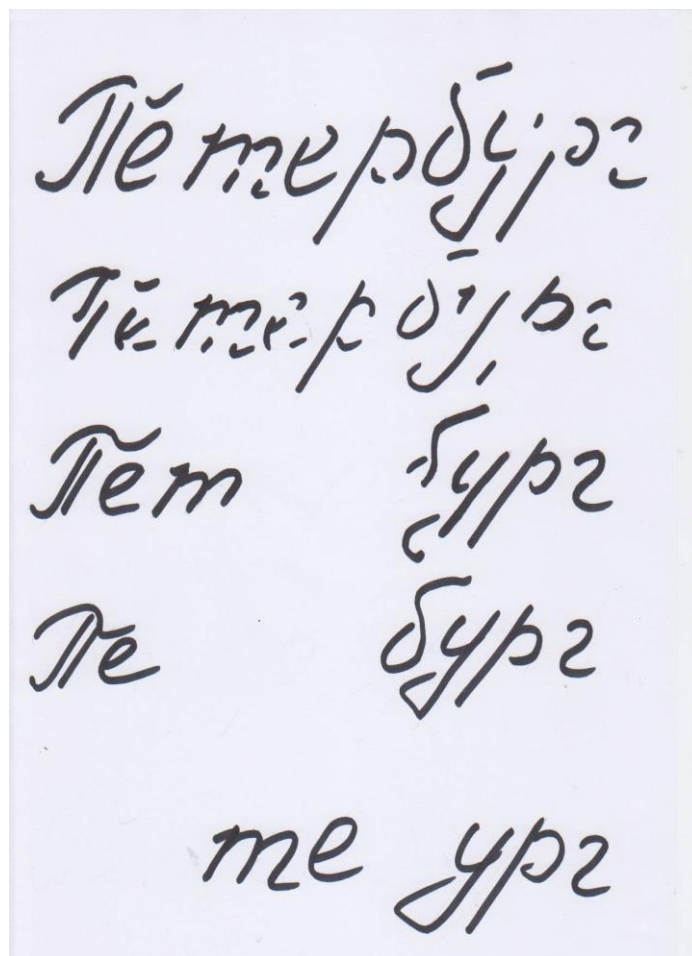 Петербург
Петербург
Пет бург
Пе бург
те ург